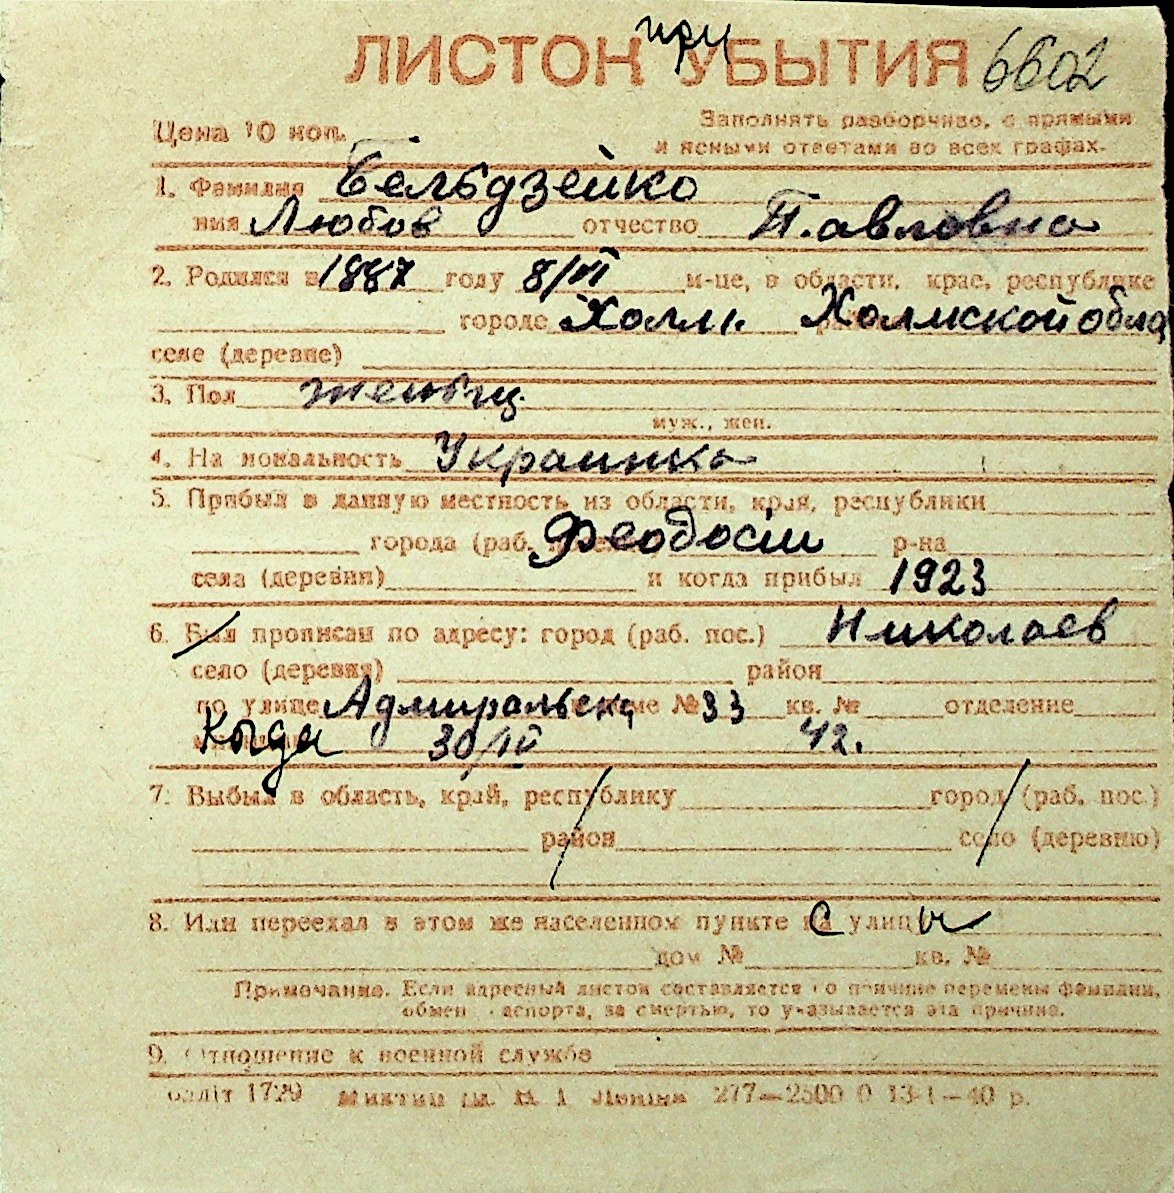 при
ЛИСТОК УБЫТИЯ 6602
Цена 10 коп.
Заполнять разборчиво, с прямыми
и ясными ответами во всех графах.
1. Фамилия Бельдзейко
имя Любов отчество Павловна
2. Родился в 1887 году 8/VI м-це, в области, крае, республике
городе Холм. Холмской обла
селе (деревне)
3. Пол женщ.
муж., жен.
4. На иональность Украинка
5. Прибыл в данную местность из области, края, республики
города (раб. Феодосіи р-на
села (деревни) и когда прибыл 1923
6. Был прописан по адресу: город (раб. пос.) Николаев
село (деревня) район
по улице Адмиральск доме № 33 кв. № отделение
Когда 30/IV 42.
7. Выбыл в область, край, республику город (раб. пос.)
район село (деревню)
8. Или переехал в этом же населенном пункте с улицы
дом № кв. №
Примечание. Если адресный листок составляется по причине перемены фамилии,
обмен паспорта, за смертью, то указывается эта причина.
9. Отношение к военной службе
1729 277—2500 0 13-I—40 р.